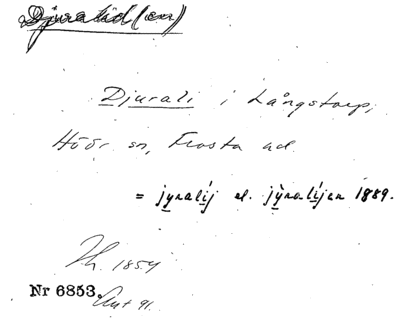 Djuralid(en)
Djurali i Långstorp,
Höör sn, Frosta hd.
= jyralij el. jyralijen 1889.
Th. 1854
Nr 6853. Ant 91.